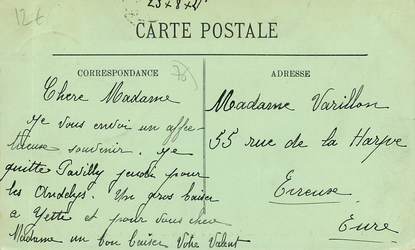 12€
23 • 8 • 21
CARTE POSTALE
CORRESPONDANCE
76
ADRESSE
Chere Madame
je vous envoi un affec-
tueuse souvenir. je
quitte Pavilly jeudi pour
les Andelys. Un gros baiser
a Yette et pour vous chere
Madame un bon baiser Votre
Madame Varillon
55 rue de la Harpe
Evreuse
Eure